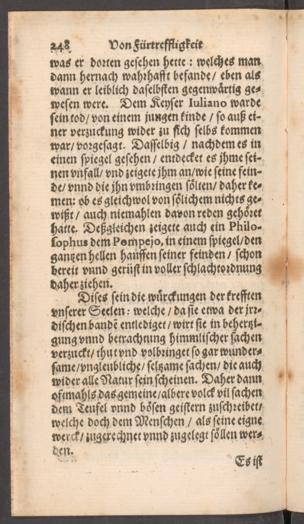 248 Von Fürtreffligkeit
was er dorten gesehen hette: welches man
dann hernach wahrhafft befande/ eben als
wann er leiblich daselbsten gegenwärtig ge-
wesen were. Dem Keyser Iuliano warde
sein tod/ von einem jungen kinde/ so auß ei-
ner verzuckung wider zu sich selbs kommen
war/ vorgesagt. Dasselbig/ nachdem es in
einen spiegel gesehen/ entdecket es jhme sei-
nen vnfall/ vnd zeigete jhm an/ wie seine fein-
de/ vnnd die jhn vmbringen sölten/ daher ke-
men: ob es gleichwol von sölichem nichts ge-
wißt/ auch niemahlen davon reden gehöret
hatte. Deßgleichen zeigete auch ein Philo-
sophus dem Pompejo, in einem spiegel/ den
gantzen hellen hauffen seiner feinden/ schon
bereit vnnd gerüst in voller schlachtordnung
daher ziehen.
Dises sein die würckungen der krefften
vnserer Seelen: welche/ da sie etwa der jrr-
dischen bande entlediget/ wirt sie in behertzi-
gung vnnd betrachtung himmlischer sachen
verzuckt/ thut vnd volbringet so gar wunder-
same/ vngleubliche/ seltzame sachen/ die auch
wider alle Natur sein scheinen. Daher dann
oftmahls das gemeine/ albere volck vil sachen
dem Teufel vnnd bösen geistern zuschreibet/
welche doch dem Menschen/ als seine eigne
werck/ zugerechnet vnnd zugelegt söllen wer-
den.
Es ist